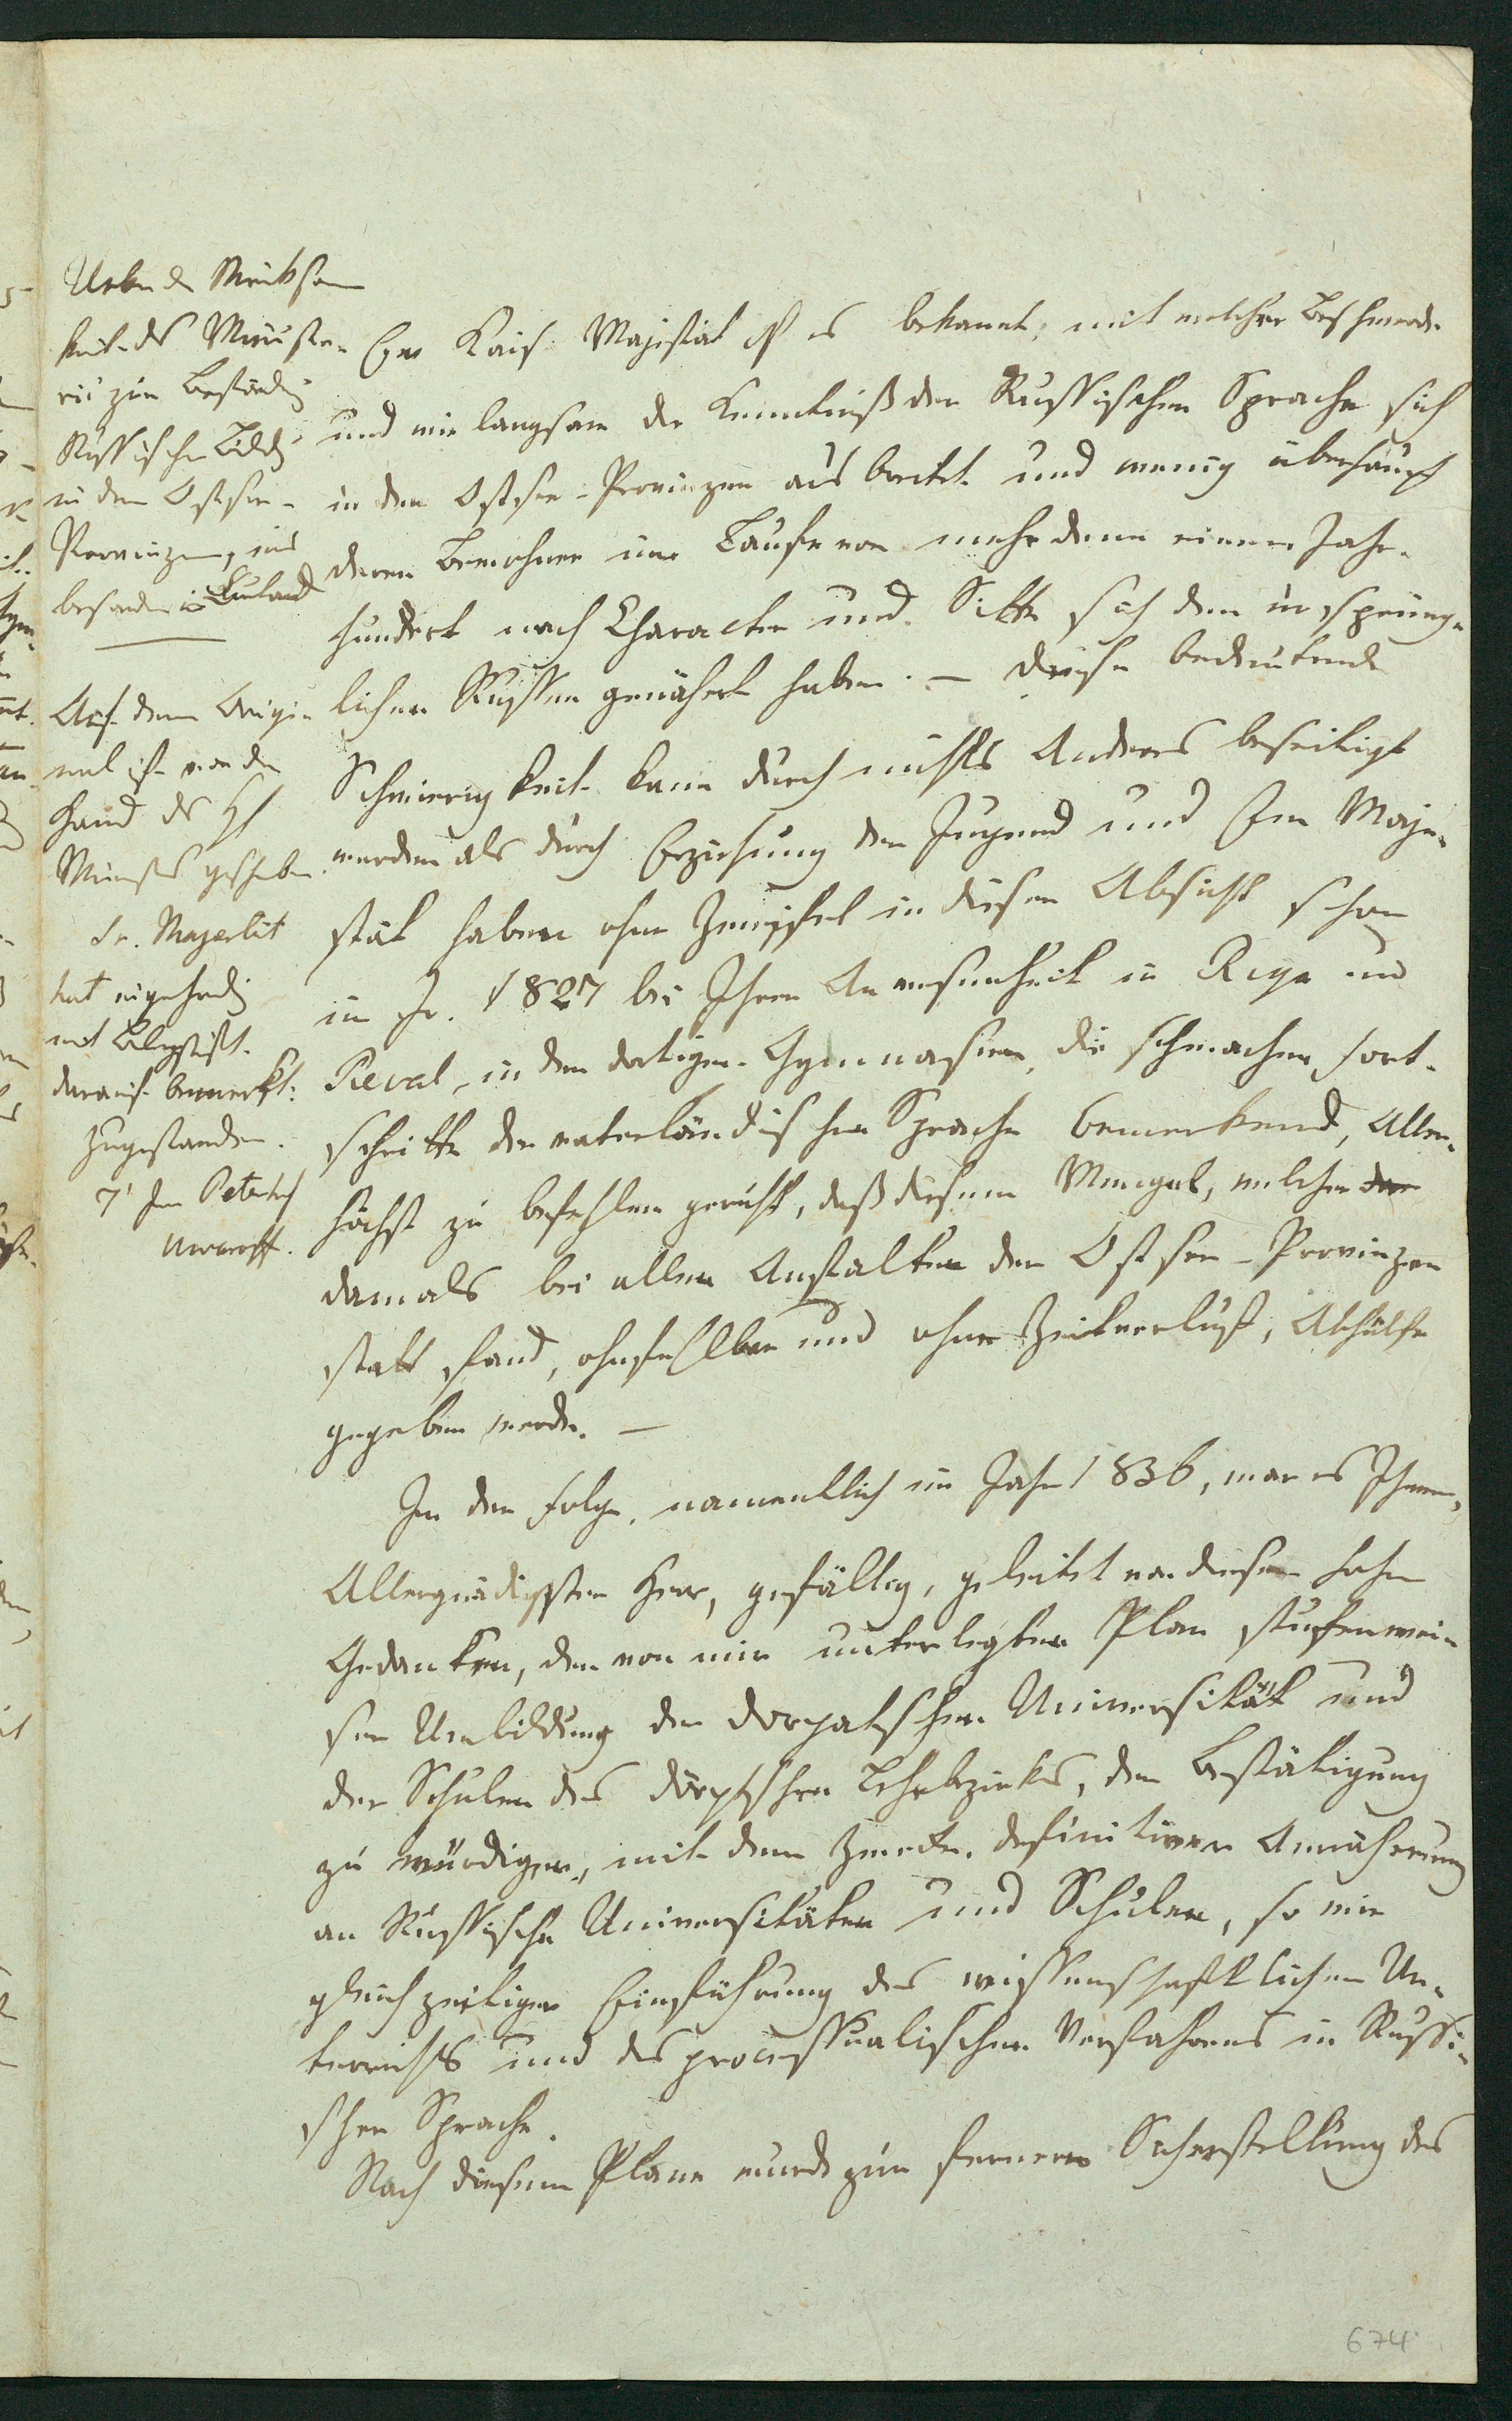 Ueber die Wirksam
keit des Ministe-
rii zur Beförderg
Russischer Bildg
in den Ostsee-
Provinzen, ins
besondere in Curland
Auf dem Origi-
nal ist von der
Hand des H
Ministers geschrieben
Sr. Majestät
hat eigenhändig
mit Bleystift
darauf bemerkt:
Zugestanden.
7' Jun Peterhof
Uwaroff.
Ew Kais. Majestät ist es bekannt, mit welcher Beschwerde
und wie langsam die Kenntniß der Russischen Sprache sich
in den Ostsee-Provinzen ausbreitet und wenig überhaupt
deren Bewohner im Laufe von mehr denn einem Jahr-
hundert nach Character und Sitte sich den ursprüng-
lichen Russen genähert haben. — Diese bedeutende
Schwierigkeit kann durch nichts Anderes beseitigt
werden als durch Erziehung der Jugend und Ew Maje-
stät haben ohne Zweifel in dieser Absicht schon
im Jr. 1827 bei Ihrer Anwesenheit in Riga und
Reval, in den dortigen Gymnasien, die schwachen Fort-
schritte der vaterländischen Sprache bemerkend, Aller-
höchst zu befehlen geruht, daß diesem Mangel, welcher der
damals bei allen Anstalten der Ostsee-Provinzen
statt fand, ohnfehlbar und ohne Zeitverlust, Abhülfe
gegeben werde. —
In der Folge, namentlich im Jahr 1836, war es Ihnen,
Allergnädigster Herr, gefällig, geleitet von diesem hohen
Gedanken, den von mir unterlegten Plan stufenwei-
ser Umbildung der Dorpatschen Universität und
der Schulen des dörptschen Lehrbezirks, der Bestätigung
zu würdigen, mit dem Zwecke definitiver Annäherung
an Russische Universitäten und Schulen, so wie
gleichzeitiger Einführung des wissenschaftlichen Un-
terrichts und des processualischen Verfahrens in Russi-
scher Sprache.
Nach diesem Plane wurde zur fernern Sicherstellung des
674